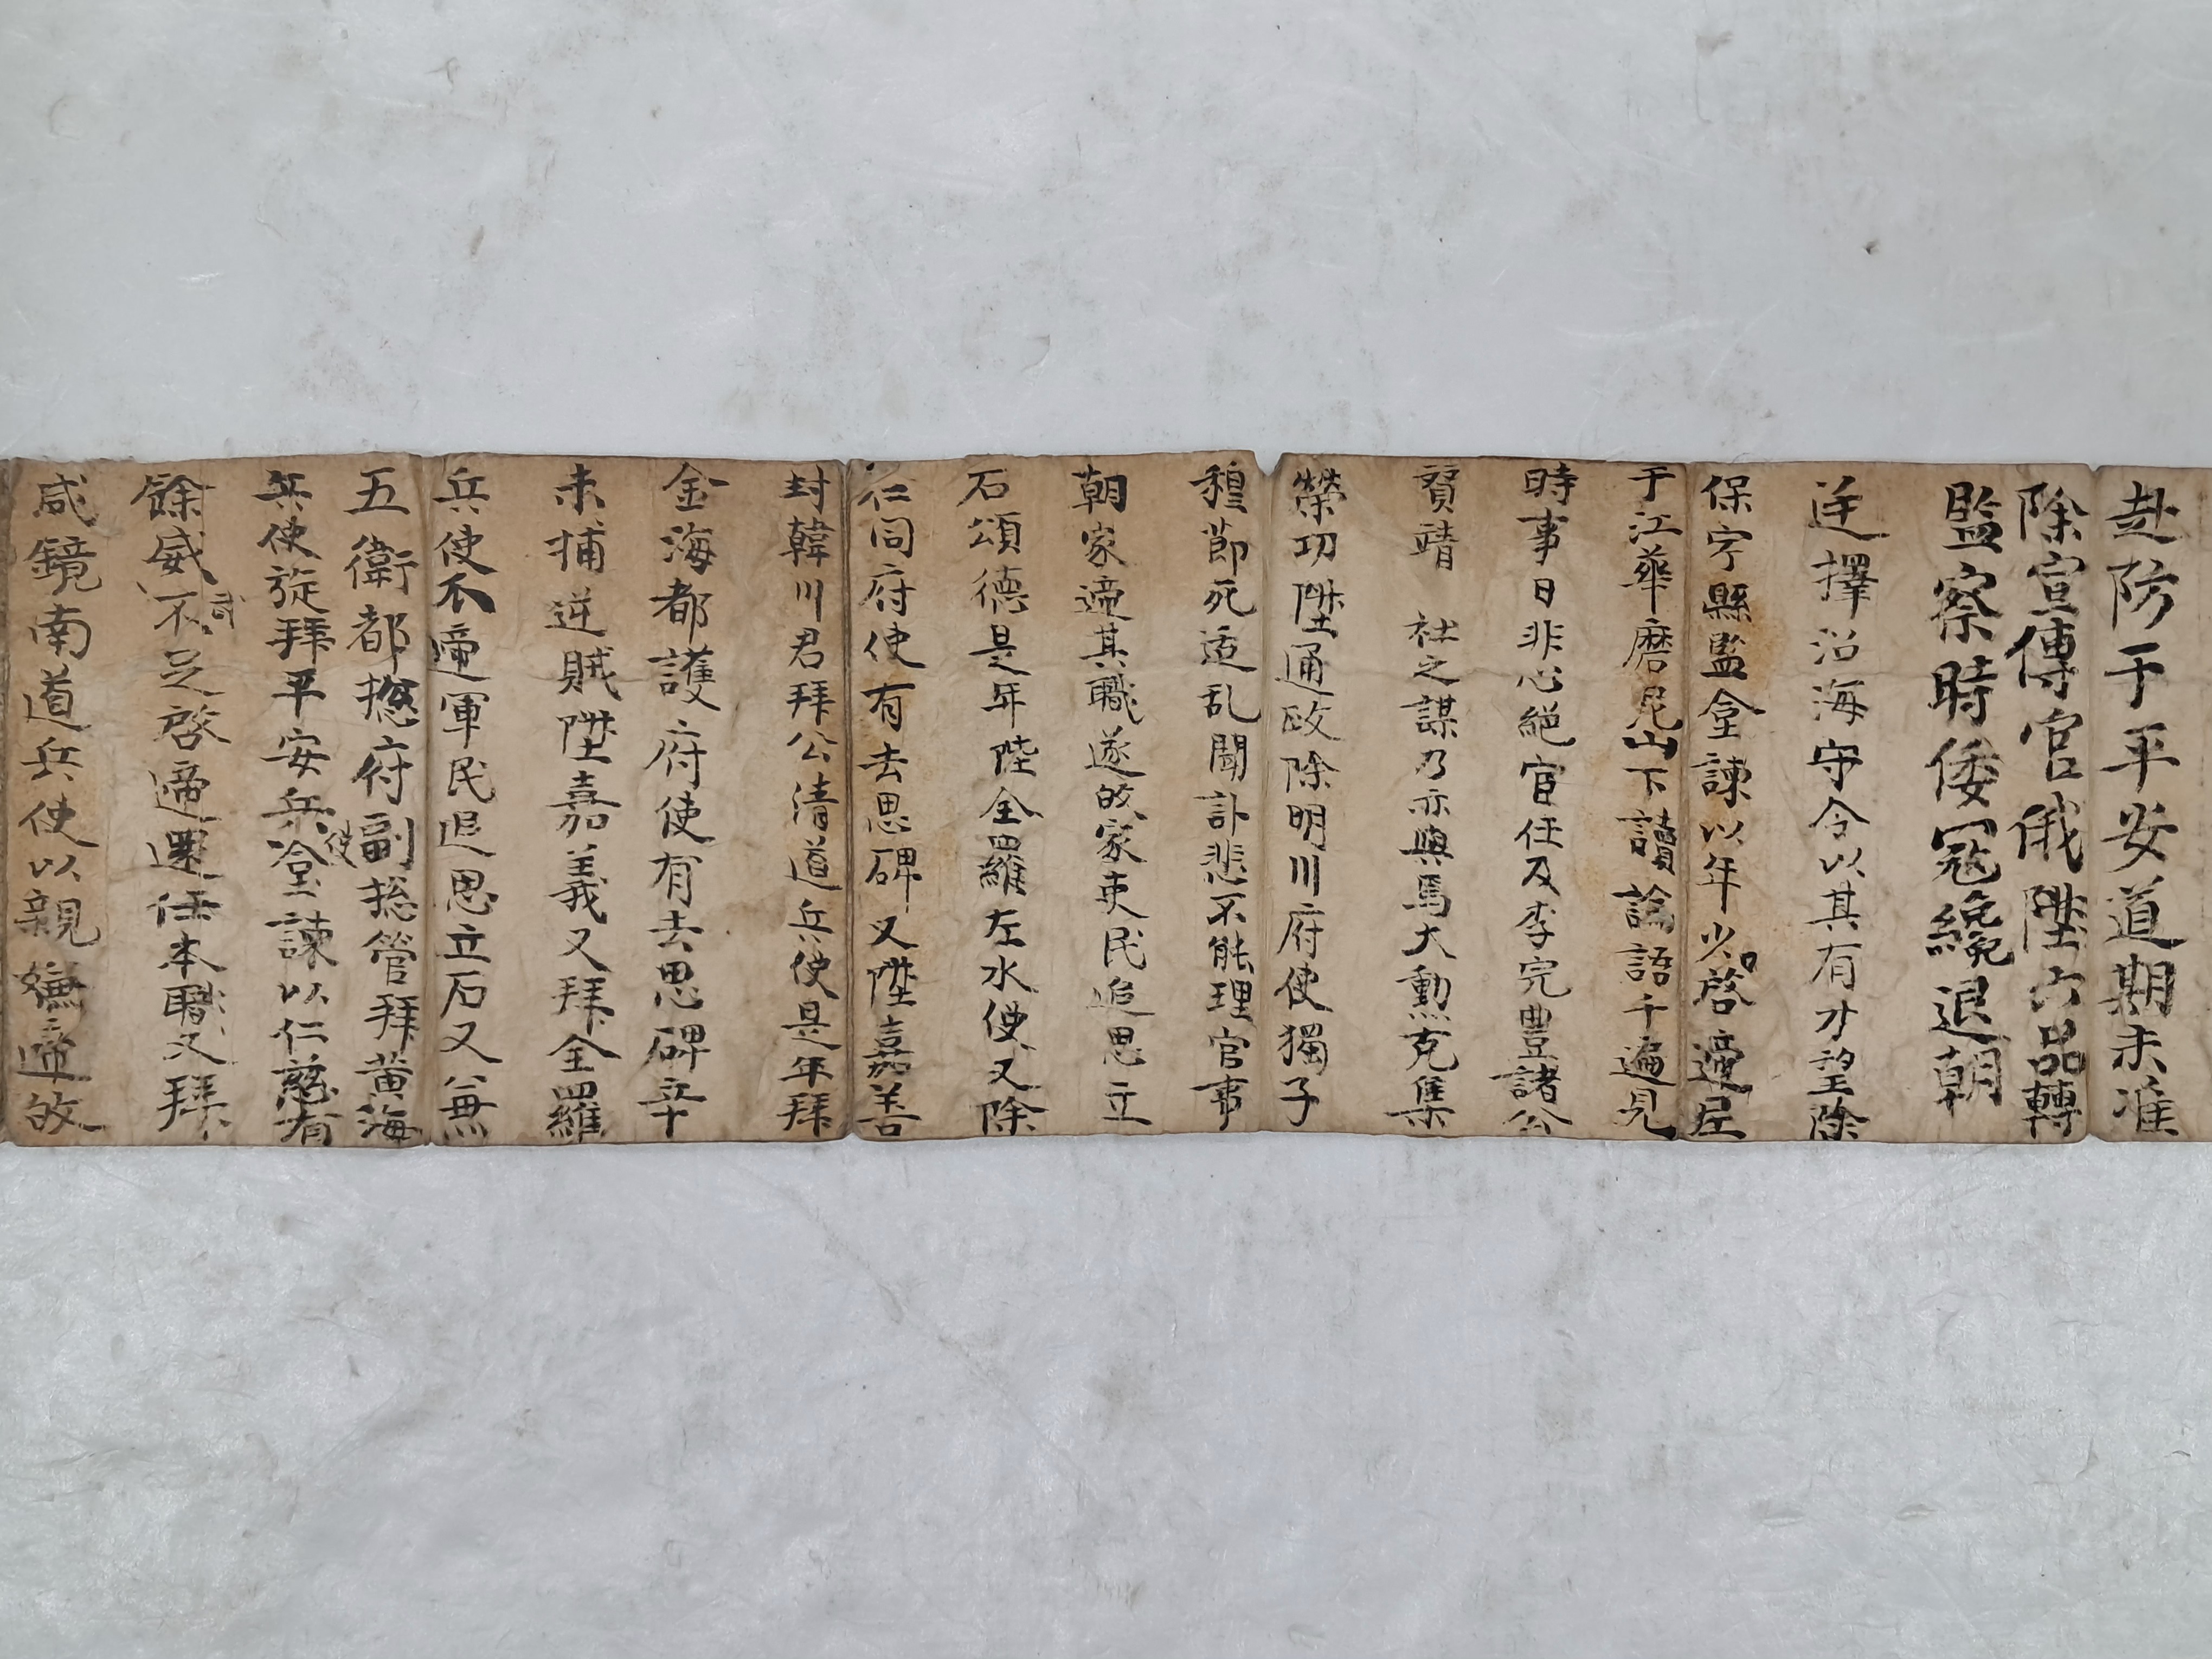 赴防于平安道期未准
除宣傳官俄陞六品轉
監察時倭冦纔退朝
廷擇沿海守令以其有才望除
保寧縣監臺諫以年少啓遆居
于江華摩尼山下讀論語千遍見
時事日非心絕宦任及李完豊諸公
賛靖 社之謀乃亦與焉大勳克集
榮功陞通政除明川府使獨子
穆節死适乱聞訃悲不能理官事
朝家遆其職遂啟家吏民追思立
石頌德是年陞全羅左水使又除
仁同府使有去思碑又陞嘉善
封韓川君拜公清道兵使是年拜
金海都護府使有去思碑辛
未捕逆賊陞嘉義又拜全羅
兵使不遆軍民追思立石又兼
五衛都摠府副摠管拜黃海
兵使旋拜平安兵使臺諫以仁慈有
餘威武不足啓遆還任本職又拜
咸鏡南道兵使以親嫌遆啟